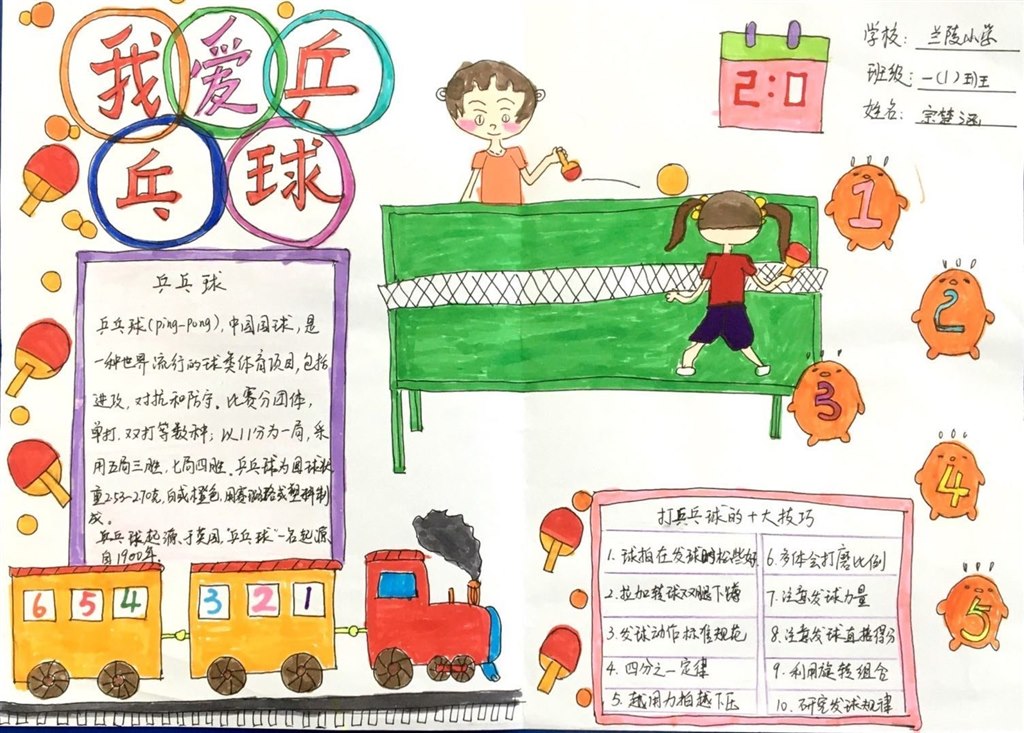 我爱乒
乓球
2:0
学校: 兰陵小学
班级: 一(1)班
姓名: 宗楚涵
1
2
3
4
5
乒乓球
乒乓球(ping-pong), 中国国球, 是
一种世界流行的球类体育项目, 包括
进攻, 对抗和防守。比赛分团体,
单打, 双打等数种; 以11分为一局, 采
用五局三胜, 七局四胜。乒乓球为圆球状
重2.53-2.70克, 白或橙色, 用赛璐珞或塑料制
成。
乒乓球起源于英国, "乒乓球"一名起源
自1900年。
6 5 4 3 2 1
打乒乓球的十大技巧
1. 球拍在发球时松些好
2. 拉加转球双腿下蹲
3. 发球动作标准规范
4. 四分之一定律
5. 越用力拍越下压
6. 多体会打磨比例
7. 注意发球力量
8. 注意发球直接得分
9. 利用旋转组合
10. 研究发球规律